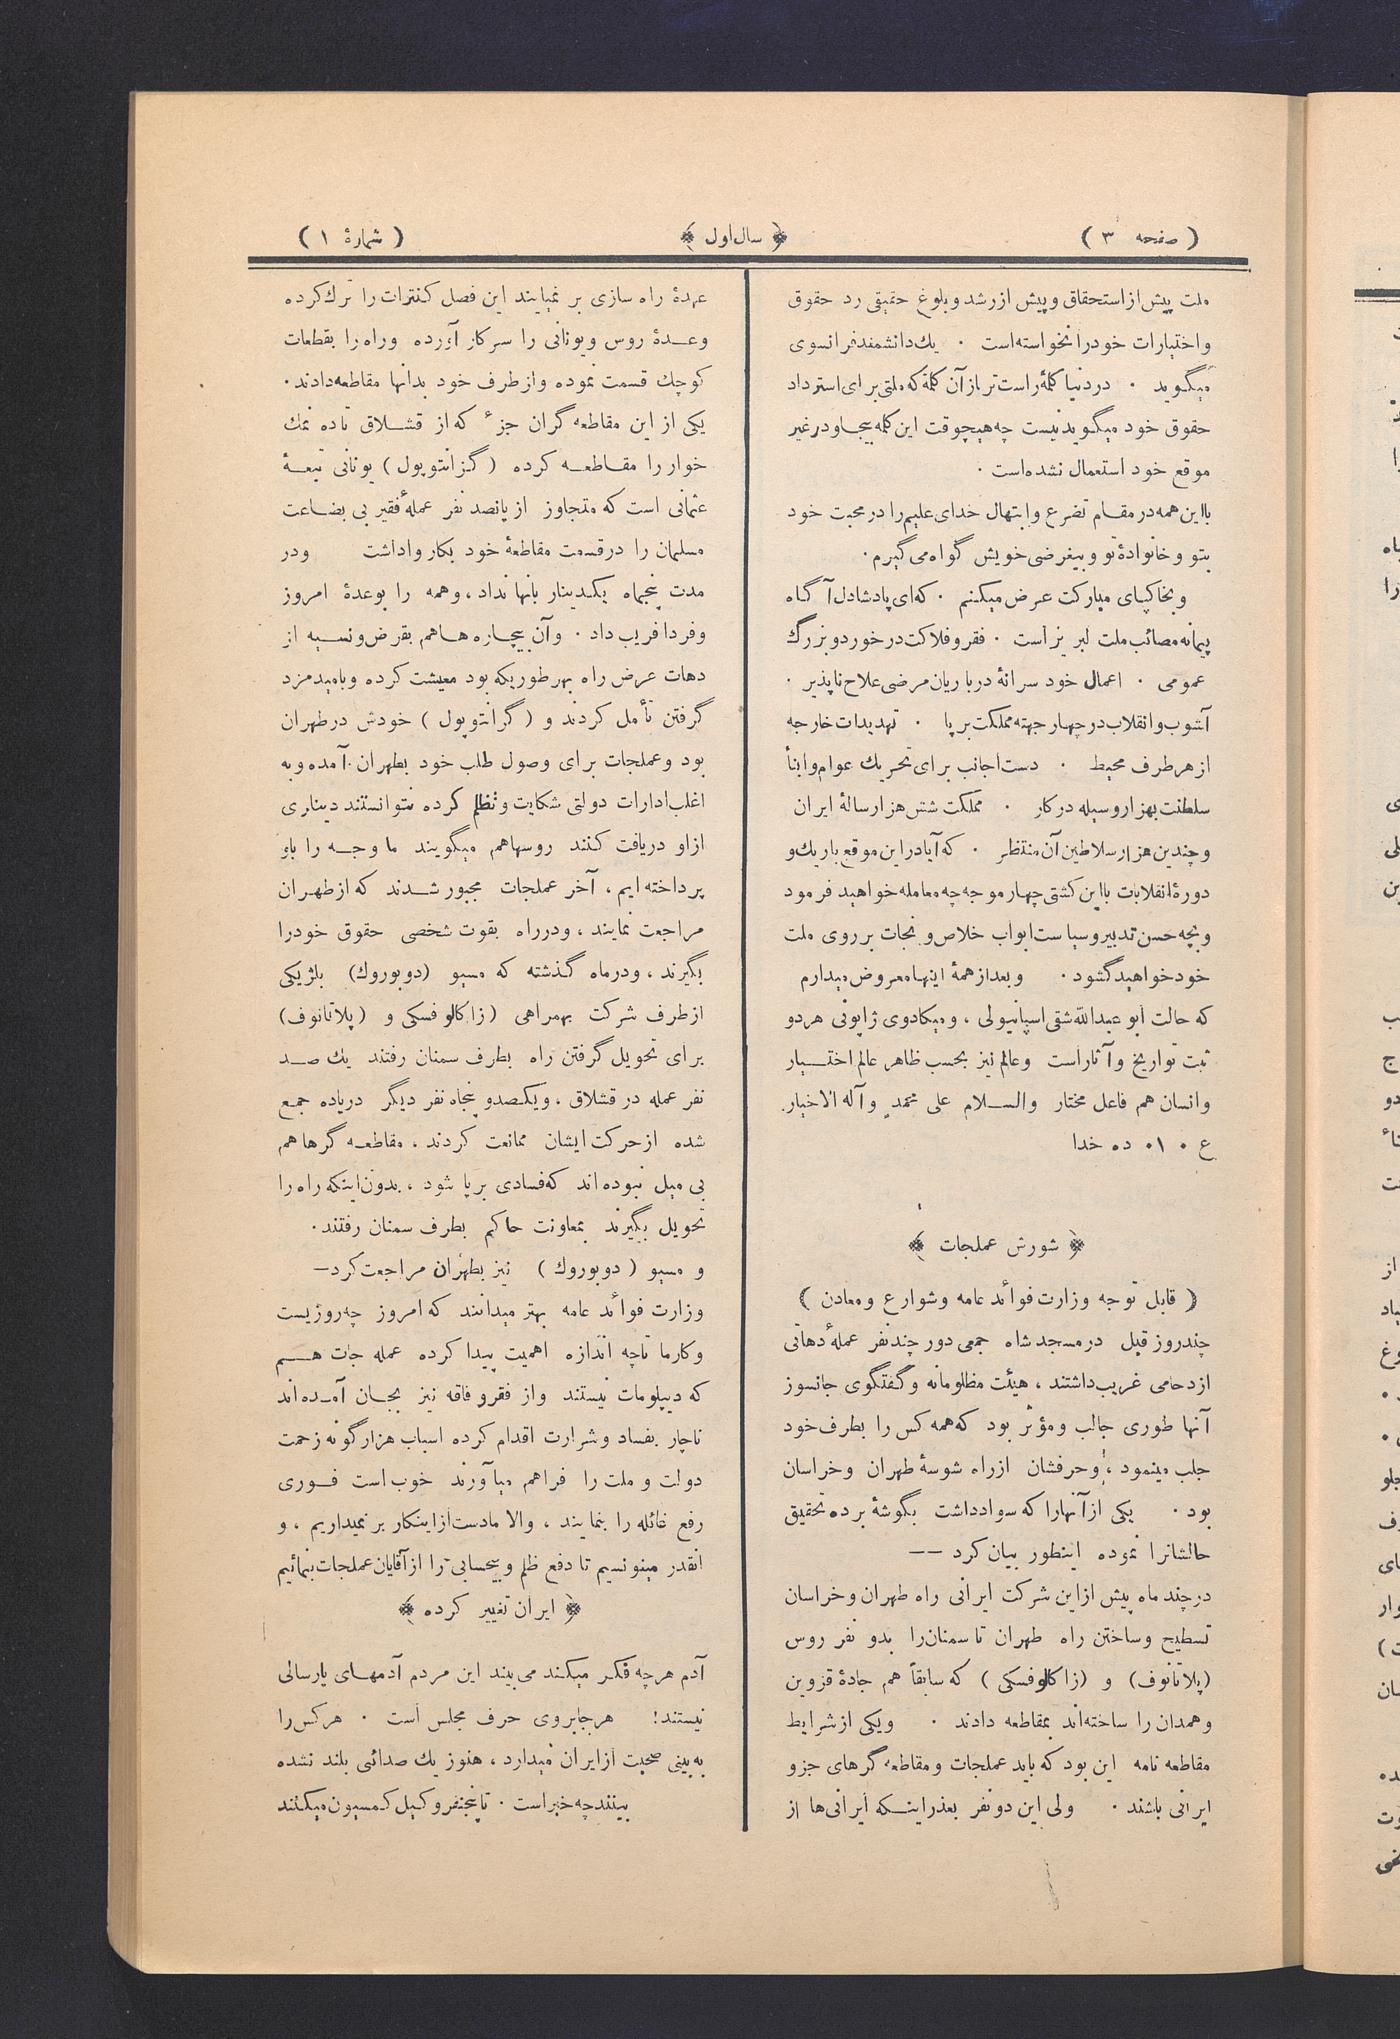 ( صفحه ۳ )
﴿ سال اول ﴾
( شمارهٔ ۱ )
ملت پیش از استحقاق و پیش از رشد و بلوغ حقیقی رد حقوق
و اختیارات خود را نخواسته است ۰ یك دانشمند فرانسوی
میگوید ۰ در دنیا کلمهٔ راست تر از آن کلمهٔ که ملتی برای استرداد
حقوق خود میگوید نیست چه هیچوقت این کلمه بیجا و در غیر
موقع خود استعمال نشده است ۰
با این همه در مقام تضرع و ابتهال خدای علیم را در محبت خود
بتو و خانوادهٔ تو و بیغرضی خویش گواه می گیرم ۰
و بخاکپای مبارکت عرض میکنم ۰ که ای پادشاه دل آگاه
پیمانه مصائب ملت لبریز است ۰ فقر و فلاکت در خورد و بزرگ
عمومی ۰ اعمال خود سرانهٔ درباریان مرضی علاح ناپذیر ۰
آشوب و انقلاب در چهار جهته مملکت برپا ۰ تهدیدات خارجه
از هر طرف محیط ۰ دست اجانب برای تحریك عوام و ابنأ
سلطنت بهزار وسیله در کار ۰ مملکت شش هزار سالهٔ ایران
و چندین هزار سلاطین آن منتظر ۰ که آیا در این موقع باریك و
دورهٔ انقلابات با این کشتی چهار موجه چه معامله خواهید فرمود
و بچه حسن تدبیر و سیاست ابواب خلاص و نجات بر روی ملت
خود خواهید گشود ۰ و بعد از همهٔ اینها معروض میدارم
که حالت ابو عبدالله شقی اسپانیولی ، و میکادوی ژاپونی هر دو
ثبت تواریخ و آثار است و عالم نیز بحسب ظاهر عالم اختیار
و انسان هم فاعل مختار والسلام علی محمدٍ و آله الاخیار.
ع ۰ ۱۰ ده خدا
﴿ شورش عملجات ﴾
( قابل توجه وزارت فوائد عامه و شوارع و معادن )
چند روز قبل در مسجد شاه جمعی دور چند نفر عملهٔ دهاتی
ازدحامی غریب داشتند ، هیئت مظلومانه و گفتگوی جانسوز
آنها طوری جالب و مؤثر بود که همه کس را بطرف خود
جلب مینمود ، و حرفشان از راه شوسهٔ طهران و خراسان
بود ۰ یکی از آنهارا که سواد داشت بگوشهٔ برده تحقیق
حالشانرا نموده اینطور بیان کرد ——
در چند ماه پیش از این شرکت ایرانی راه طهران و خراسان
تسطیح و ساختن راه طهران تا سمنان را بدو نفر روس
(پلاتانوف) و (زاکالوفسکی) که سابقاً هم جادهٔ قزوین
و همدان را ساخته اند بمقاطعه دادند ۰ و یکی از شرایط
مقاطعه نامه این بود که باید عملجات و مقاطعه گرهای جزو
ایرانی باشند ۰ ولی این دو نفر بعذر اینکه ایرانی ها از
عهدهٔ راه سازی بر نمیایند این فصل کنترات را ترك کرده
و عدهٔ روس و یونانی را سرکار آورده و راه را بقطعات
کوچك قسمت نموده و از طرف خود بدانها مقاطعه دادند۰
یکی از این مقاطعه گران جزء که از قشلاق تاده نمك
خوار را مقاطعه کرده (گرانتوپول) یونانی تبعهٔ
عثمانی است که متجاوز از پانصد نفر عملهٔ فقیر بی بضاعت
مسلمان را در قسمت مقاطعهٔ خود بکار واداشت و در
مدت پنجماه یکدینار بانها نداد ، و همه را بوعدهٔ امروز
و فردا فریب داد ۰ و آن بیچاره ها هم بقرض و نسیه از
دهات عرض راه بهر طوریکه بود معیشت کرده و بامید مزد
گرفتن تأمل کردند و (گرانتوپول) خودش در طهران
بود و عملجات برای وصول طلب خود بطهران آمده و به
اغلب ادارات دولتی شکایت و تظلم کرده نتوانستند دیناری
از او دریافت کنند روسها هم میگویند ما وجه را باو
پرداخته ایم ، آخر عملجات مجبور شدند که از طهران
مراجعت نمایند ، و در راه بقوت شخصی حقوق خودرا
بگیرند ، و در ماه گذشته که مسیو (دوبوروك) بلژیکی
از طرف شرکت بهمراهی (زاکالوفسکی و (پلاتانوف)
برای تحویل گرفتن راه بطرف سمنان رفتند یك صد
نفر عمله در قشلاق ، و یکصد و پنجاه نفر دیگر درپاده جمع
شده از حرکت ایشان ممانعت کردند ، مقاطعه گرها هم
بی میل نبوده اند که فسادی برپا شود ، بدون اینکه راه را
تحویل بگیرند بمعاونت حاکم بطرف سمنان رفتند۰
و مسیو (دوبوروك) نیز بطهران مراجعت کرد—
وزارت فوائد عامه بهتر میدانند که امروز چه روزیست
و کارما تاچه اندازه اهمیت پیدا کرده عمله جات هم
که دیپلومات نیستند و از فقر و فاقه نیز بجان آمده اند
ناچار بفساد و شرارت اقدام کرده اسباب هزار گونه زحمت
دولت و ملت را فراهم میآورند خوب است فوری
رفع غائله را بنمایند ، والا مادست از اینکار بر نمیداریم ، و
انقدر مینویسیم تا دفع ظلم و بیحسابی را از آقایان عملجات بنمائیم
﴿ ایران تغییر کرده ﴾
آدم هرچه فکر میکند می بیند این مردم آدمهای پارسالی
نیستند! هر جا بروی حرف مجلس است ۰ هر کس را
به بینی صحبت از ایران میدارد ، هنوز یك صدائی بلند نشده
بینند چه خبر است ۰ تا پنجنفر وکیل کمسیون میکنند